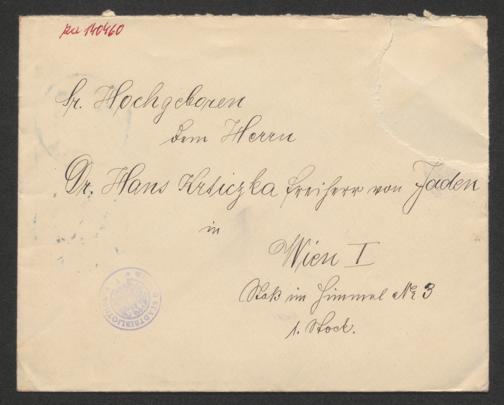 zu 140460
Sr. Hochgeboren
dem Herrn
Dr. Hans Krticzka Freiherr von Jaden
in
Wien I
Stoß im Himmel No 3
1. Stock.